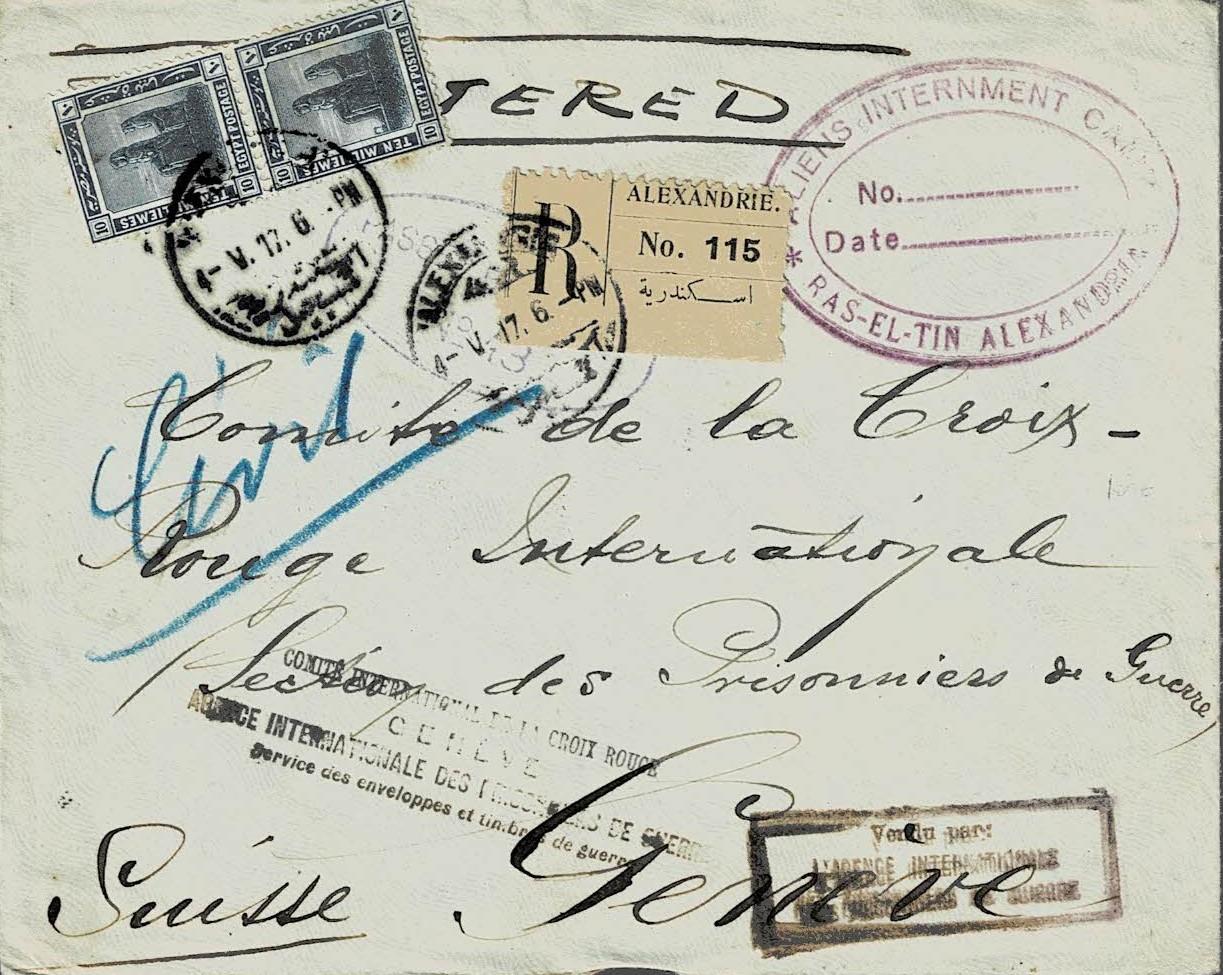 TERED
EGYPT POSTAGE
10 TEN MILLIEMES 10
EGYPT POSTAGE
10 TEN MILLIEMES 10
4-V.17.6 -PM
ALIENS INTERNMENT CAMP
No.
Date
* RAS-EL-TIN ALEXANDRIA
R
ALEXANDRIE.
No. 115
اسكندرية
4-V.17.6 -PM
Civil
Comité de la Croix-
Rouge Internationale
(Section des Prisonniers de Guerre)
COMITÉ INTERNATIONAL DE LA CROIX ROUGE
GENÈVE
AGENCE INTERNATIONALE DES PRISONNIERS DE GUERRE
Service des enveloppes et timbres de guerre
Genève
Vendu par:
L'AGENCE INTERNATIONALE
DES PRISONNIERS DE GUERRE
Suisse